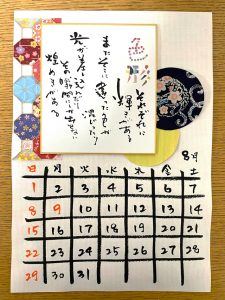 色彩
それぞれに
輝きがある
またそこに違った色が
混じったり
光が差し込んだり
その瞬間にしかない
煌めきがある
8月
日 月 火 水 木 金 土
1 2 3 4 5 6 7
8 9 10 11 12 13 14
15 16 17 18 19 20 21
22 23 24 25 26 27 28
29 30 31